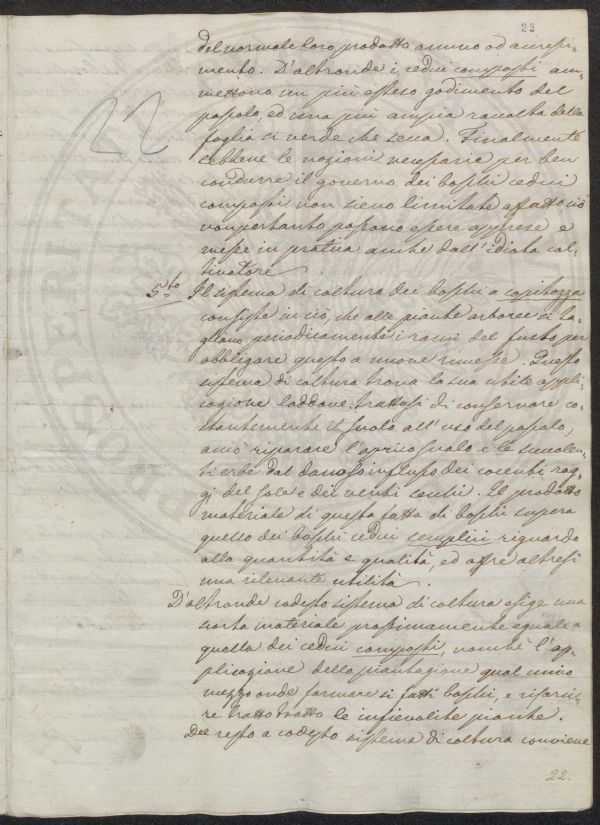 23
22
del normale loro prodotto annuo od accresci-
mento. D'altronde i cedui composti am-
mettono un più esteso godimento del
pascolo, ed una più ampia raccolta della
foglia sì verde che secca. Finalmente
sebbene le nozioni necessarie per ben
condurre il governo dei boschi cedui
composti non sieno limitate affatto, ciò
nonpertanto possono essere apprese e
messe in pratica anche dall'idiota col-
tivatore.
5.to Il sistema di coltura dei boschi a capitozza
consiste in ciò, che alle piante arboree si ta-
gliano periodicamente i rami del fusto per
obbligare questo a nuove rimesse. Questo
sistema di coltura trova la sua utile appli-
cazione laddove trattasi di conservare co-
stantemente il suolo all'uso del pascolo,
anzi riparare l'aprico suolo e le succolen-
ti erbe dal dannoso influsso dei cocenti rag-
gi del sole e dei venti secchi. Il prodotto
materiale di questa fatta di boschi supera
quello dei boschi cedui semplici riguardo
alla quantità e qualità, ed offre altresì
una rilevante utilità.
D'altronde codesto sistema di coltura esige una
scorta materiale prossimamente eguale a
quella dei cedui composti, nonché l'ap-
plicazione della piantagione qual unico
mezzo onde formare sì fatti boschi, e risarci-
re tratto tratto le infievolite piante.
Del resto a codesto sistema di coltura conviene
22.